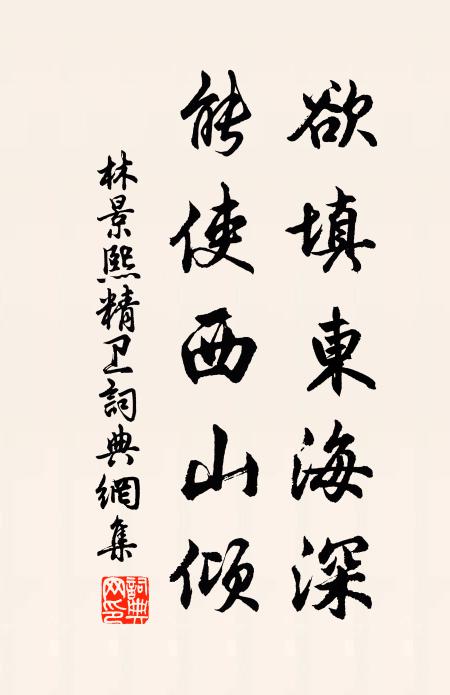 欲填東海深
能使西山傾
林景熙精卫詞典網集
詞典网印